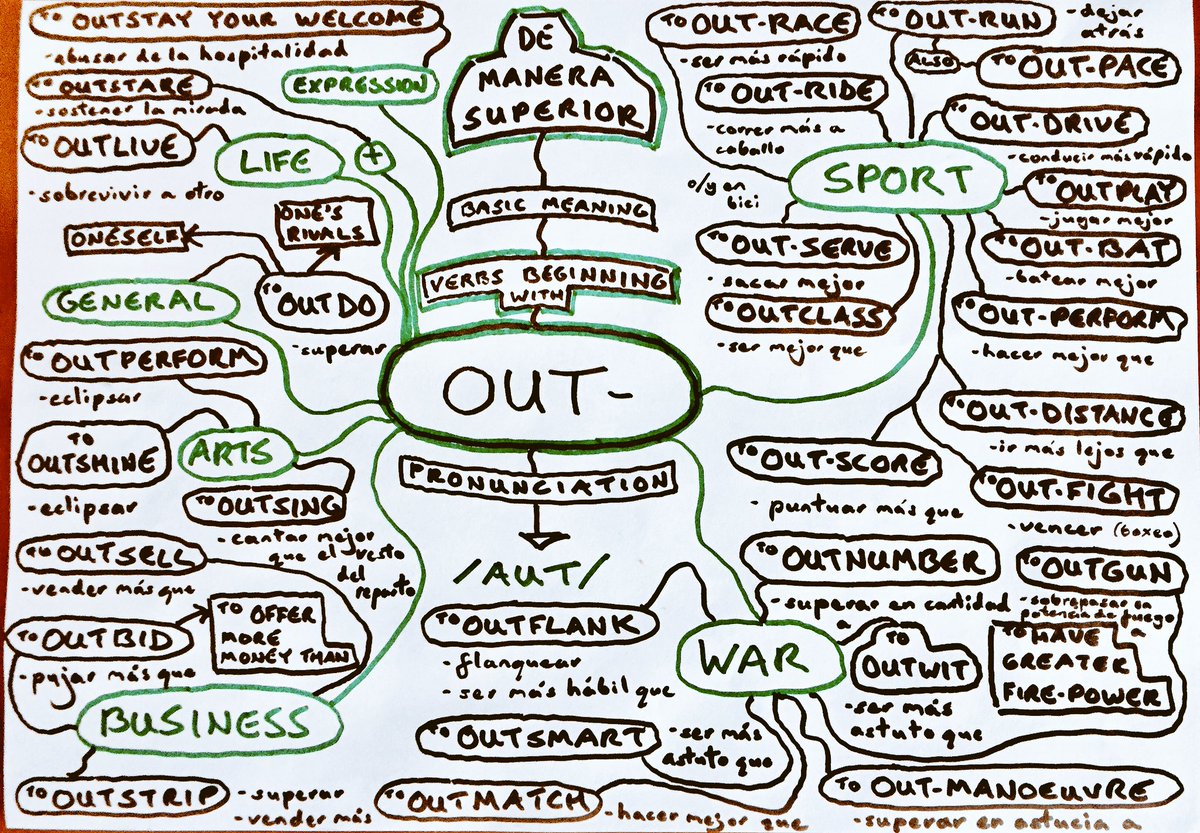 TO OUTSTAY YOUR WELCOME
-abusar de la hospitalidad
EXPRESSION
TO OUTSTARE
-sostener la mirada
TO OUTLIVE
-sobrevivir a otro
LIFE
+
ONE'S
RIVALS
ONESELF
GENERAL
TO OUTDO
-superar
DE
MANERA
SUPERIOR
BASIC MEANING
VERBS BEGINNING
WITH
OUT-
PRONUNCIATION
/AUT/
TO OUT-RACE
-ser más rápido
TO OUT-RUN
-dejar
atrás
ALSO
TO OUT-PACE
TO OUT-RIDE
-correr más a
caballo
o/y en
bici
TO OUT-DRIVE
-conducir más rápido
SPORT
TO OUTPLAY
-jugar mejor
TO OUT-SERVE
-sacar mejor
TO OUT-BAT
-batear mejor
TO OUTCLASS
-ser mejor que
TO OUT-PERFORM
-hacer mejor que
TO OUT-DISTANCE
-ir más lejos que
TO OUT-SCORE
-puntuar más que
TO OUT-FIGHT
-vencer (boxeo)
TO OUTPERFORM
-eclipsar
TO
OUTSHINE
-eclipsar
ARTS
TO OUTSING
-cantar mejor
que el resto
del
reparto
TO OUTSELL
-vender más que
TO OUTBID
-pujar más que
TO OFFER
MORE
MONEY THAN
BUSINESS
TO OUTSTRIP
-superar
-vender más
TO OUTFLANK
-flanquear
-ser más hábil que
WAR
TO OUTNUMBER
-superar en cantidad
a
TO OUTGUN
-sobrepasar en
potencia de fuego
a
TO HAVE
GREATER
FIRE-POWER
TO
OUTWIT
-ser más
astuto que
TO OUTSMART
-ser más
astuto que
TO OUTMATCH
-hacer mejor que
TO OUT-MANOEUVRE
-superar en astucia a